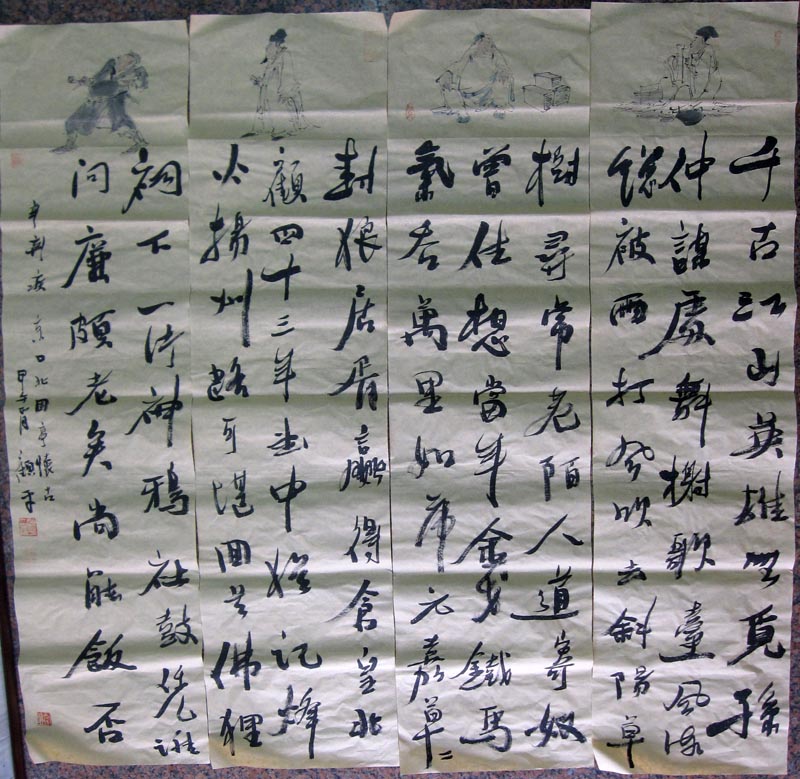 千古江山英雄無覓孫
仲謀處舞榭歌臺風流
總被雨打風吹去斜陽草
樹尋常巷陌人道寄奴
曾住想當年金戈鐵馬
氣吞萬里如虎元嘉草二
封狼居胥贏得倉皇北
顧四十三年望中猶記烽
火揚州路可堪回首佛狸
祠下一片神鴉社鼓憑誰
問廉頗老矣尚能飯否
辛棄疾 京口北固亭懷古